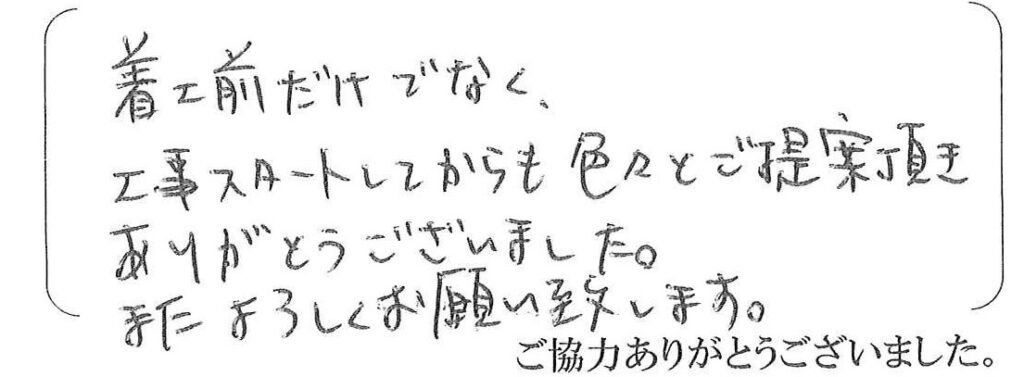 着工前だけでなく、
工事スタートしてからも色々とご提案頂き
ありがとうございました。
またよろしくお願い致します。
ご協力ありがとうございました。